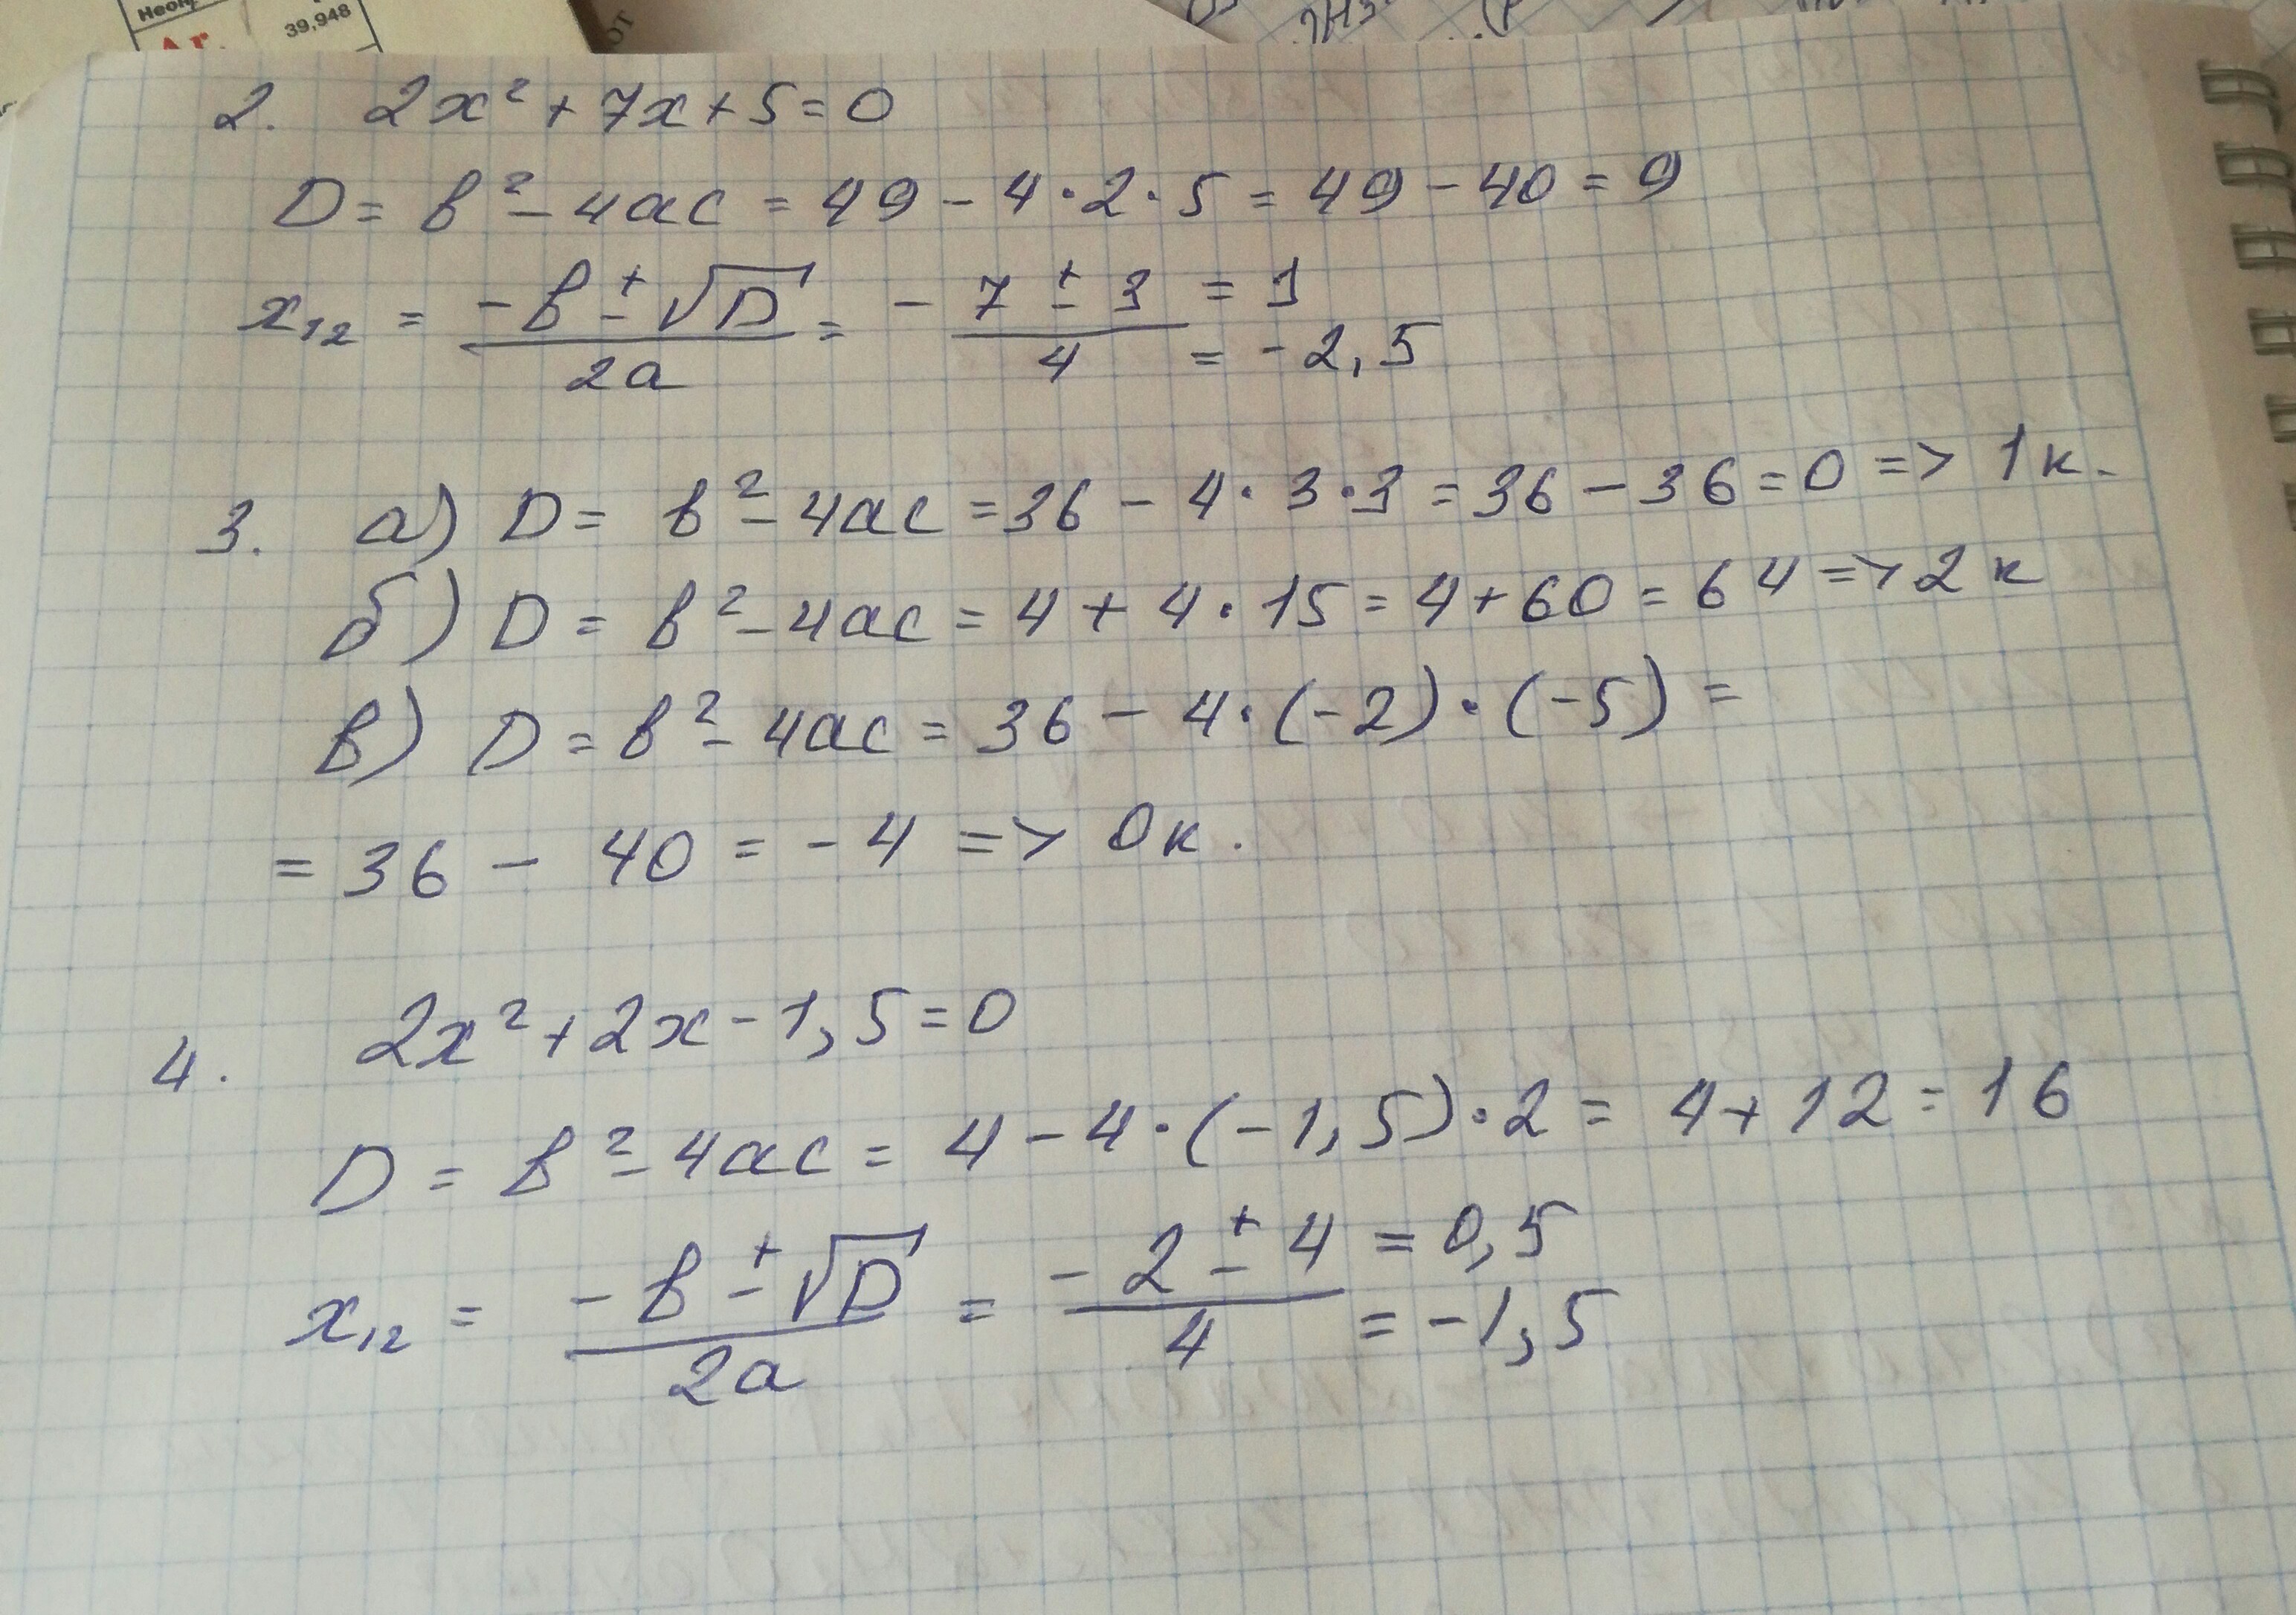 Неон
39,948
Ar
2. 2x² + 7x + 5 = 0
D = b² - 4ac = 49 - 4 · 2 · 5 = 49 - 40 = 9
x₁₂ = (-b ± √D) / 2a = - (7 ± 3) / 4 = 1
= -2,5
3. а) D = b² - 4ac = 36 - 4 · 3 · 3 = 36 - 36 = 0 => 1к.
б) D = b² - 4ac = 4 + 4 · 15 = 4 + 60 = 64 => 2к
в) D = b² - 4ac = 36 - 4 · (-2) · (-5) =
= 36 - 40 = -4 => 0к.
4. 2x² + 2x - 1,5 = 0
D = b² - 4ac = 4 - 4 · (-1,5) · 2 = 4 + 12 = 16
x₁₂ = (-b ± √D) / 2a = (-2 ± 4) / 4 = 0,5
= -1,5